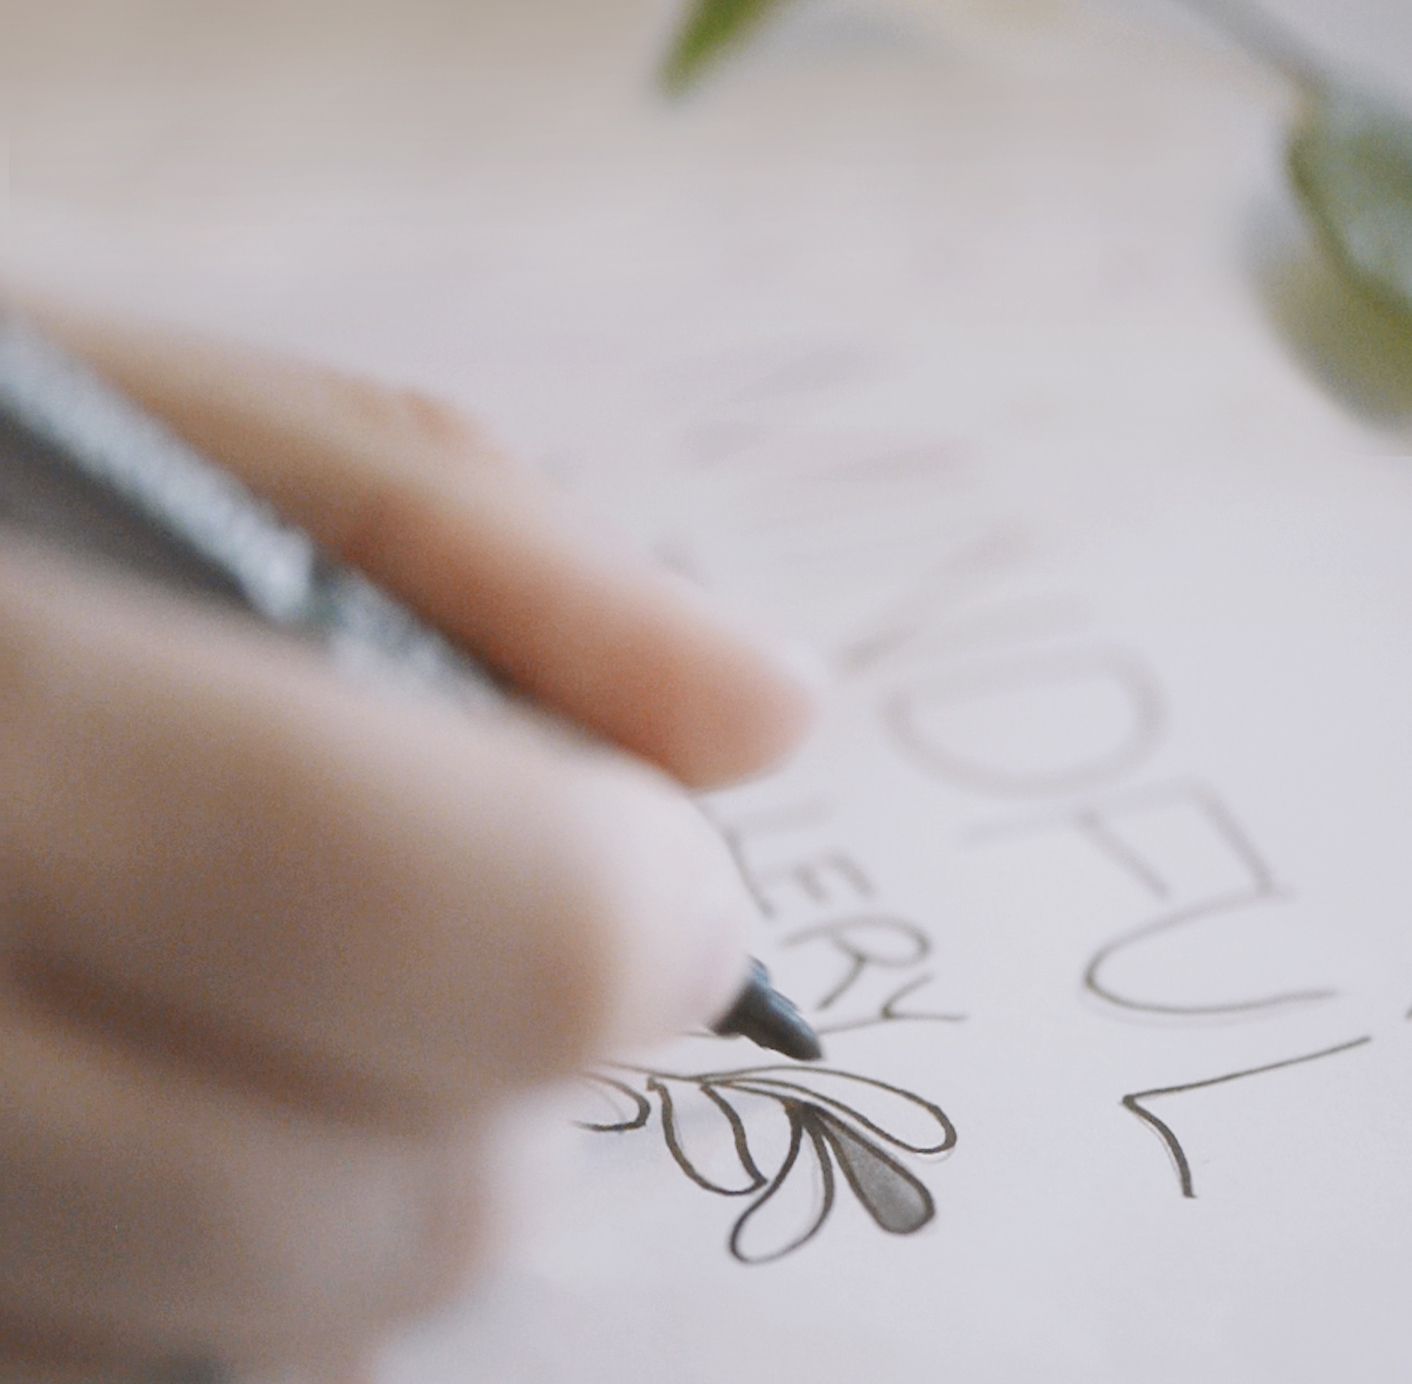 MINDFUL
LERY